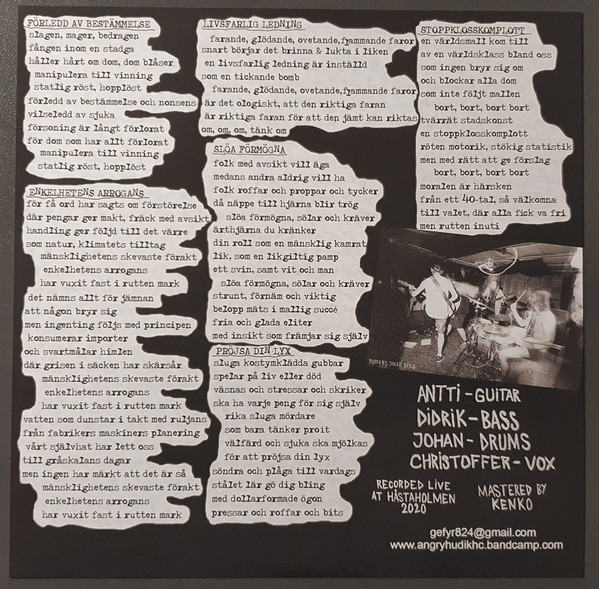 FÖRLEDD AV BESTÄMMELSE
slagen, mager, bedragen
fången inom en stadga
håller hårt om dom, dom blåser
manipulera till vinning
statlig röst, hopplöst
förledd av bestämmelse och nonsens
vilseledd av sjuka
försoning är långt förlorat
för dom som har allt förlorat
manipulera till vinning
statlig röst, hopplöst
ENKELHETENS ARROGANS
för få ord har sagts om förstörelse
där pengar ger makt, fräck med avsikt
handling ger följd till det värre
som natur, klimatets tilltag
mänsklighetens skevaste förakt
enkelhetens arrogans
har vuxit fast i rutten mark
det nämns allt för jämnan
att någon bryr sig
men ingenting följs med principen
konsumerar importer
och svartmålar himlen
där grisen i säcken har skärsår
mänsklighetens skevaste förakt
enkelhetens arrogans
har vuxit fast i rutten mark
vatten som dunstar i takt med ruljans
från fabrikers maskiners planering
vårt självhat har lett oss
till gråskalans dagar
men ingen har märkt att det är så
mänsklighetens skevaste förakt
enkelhetens arrogans
har vuxit fast i rutten mark
LIVSFARLIG LEDNING
farande, glödande, ovetande, flammande faror
snart börjar det brinna & lukta i liken
en livsfarlig ledning är inställd
som en tickande bomb
farande, glödande, ovetande, flammande faror
är det ologiskt, att den riktiga faran
är riktiga faran för att den jämt kan riktas
om, om, om, tänk om
SLÖA FÖRMÖGNA
folk med avsikt vill äga
medans andra aldrig vill ha
folk roffar och proppar och tycker
då näppe till hjärna blir trög
slöa förmögna, sölar och kräver
ärthjärna du kränker
din roll som en mänsklig kamrat
lik, som en likgiltig pamp
ett svin, samt vit och man
slöa förmögna, sölar och kräver
strunt, förnäm och viktig
belopp mäts i mallig succé
fria och glada eliter
med insikt som främjar sig själv
PRÖJSA DIN LYX
sluga kostymklädda gubbar
spelar på liv eller död
väsnas och stressar och skriker
ska ha varje peng för sig själv
rika sluga mördare
som bara tänker proit
välfärd och sjuka ska mjölkas
för att pröjsa din lyx
söndra och plåga till vardags
stålet lär gö dig bling
med dollarformade ögon
pressar och roffar och bits
STOPPKLOSSKOMPLOTT
en världsmall kom till
av en världsklass bland oss
som ingen bryr sig om
och blockar alla dom
som inte följt mallen
bort, bort, bort bort
tvärrät stadskonst
en stoppklosskomplott
röten motorik, stökig statistik
men med rätt att ge förslag
bort, bort, bort bort
moralen är härsken
från ett 40-tal, så välkomna
till valet, där alla fick va fri
men rutten inuti
ANTTI - GUITAR
DIDRIK - BASS
JOHAN - DRUMS
CHRISTOFFER - VOX
RECORDED LIVE
AT HÅSTAHOLMEN
2020
MASTERED BY
KENKO
gefyr824@gmail.com
www.angryhudikhc.bandcamp.com